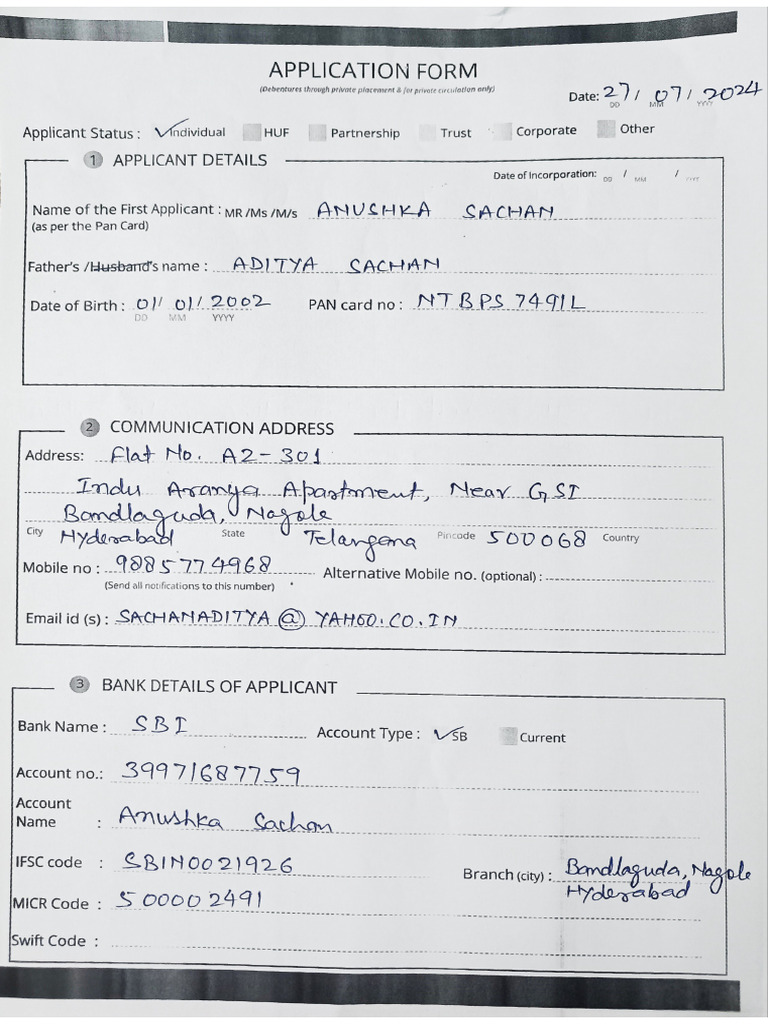 APPLICATION FORM
(Debentures through private placement & for private circulation only)
Date: 27/ 07/ 2024
DD MM YYYY
Applicant Status : ✓Individual HUF Partnership Trust Corporate Other
1 APPLICANT DETAILS
Date of Incorporation: DD / MM / YYYY
Name of the First Applicant : MR /Ms /M/s ANUSHKA SACHAN
(as per the Pan Card)
Father's /Husband's name : ADITYA SACHAN
Date of Birth : 01/ 01/ 2002 PAN card no : NTBPS 7491L
DD MM YYYY
2 COMMUNICATION ADDRESS
Address: Flat No. A2-301
Indu Aranya Apartment, Near GSI
Bandlaguda, Nagole
City Hyderabad State Telangana Pincode 500068 Country
Mobile no : 9885774968 Alternative Mobile no. (optional) :
(Send all notifications to this number)
Email id (s) : SACHANADITYA@YAHOO.CO.IN
3 BANK DETAILS OF APPLICANT
Bank Name : SBI Account Type : ✓SB Current
Account no.: 39971687759
Account
Name : Anushka Sachan
IFSC code : SBIN0021926 Branch (city) : Bandlaguda, Nagole
Hyderabad
MICR Code : 500002491
Swift Code :